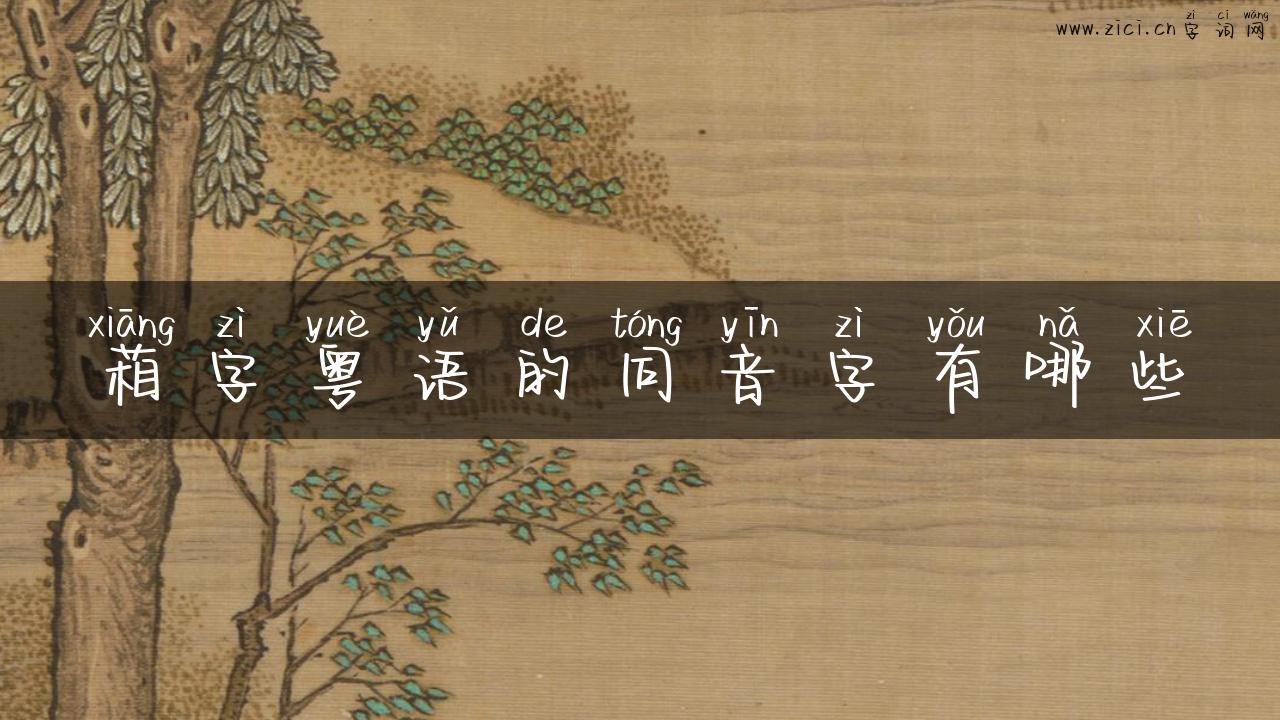 zì cí wǎng
www.zici.cn 字词网
xiāng zì yuè yǔ de tóng yīn zì yǒu nǎ xiē
葙字粤语的同音字有哪些